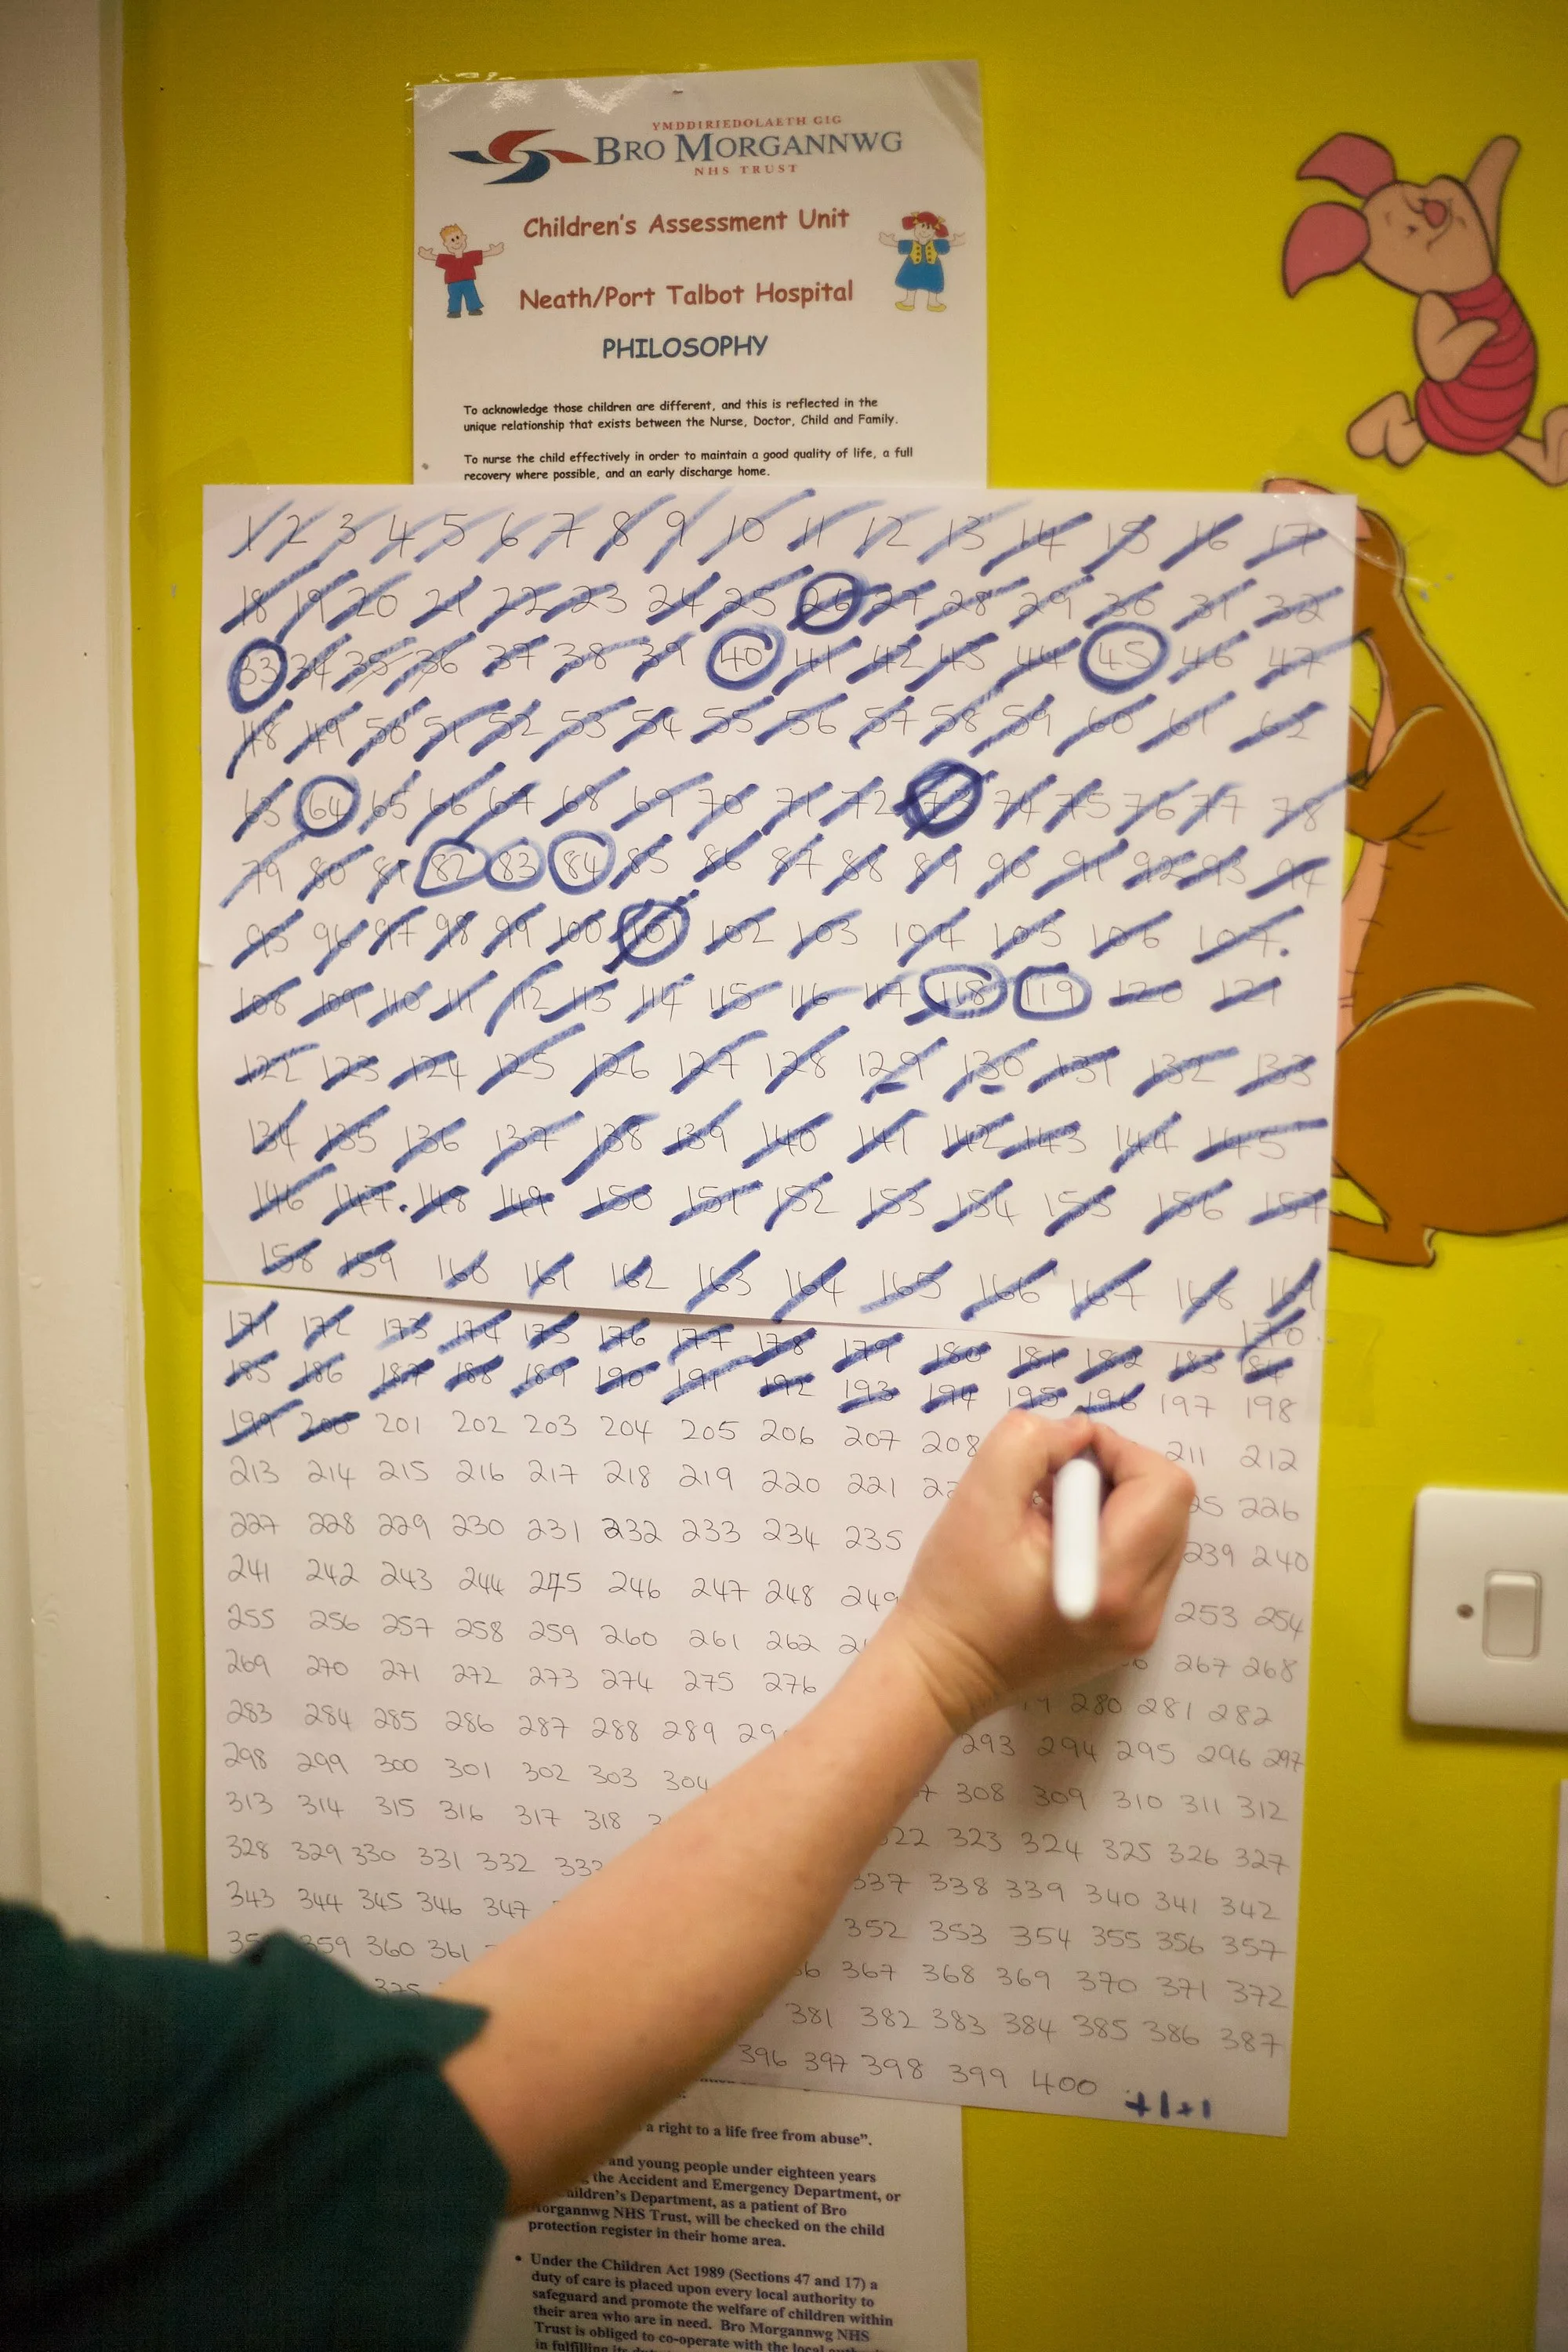 YMDDIRIEDOLAETH GIG
BRO MORGANNWG
NHS TRUST
Children's Assessment Unit
Neath/Port Talbot Hospital
PHILOSOPHY
To acknowledge those children are different, and this is reflected in the
unique relationship that exists between the Nurse, Doctor, Child and Family.
To nurse the child effectively in order to maintain a good quality of life, a full
recovery where possible, and an early discharge home.
1 2 3 4 5 6 7 8 9 10 11 12 13 14 15 16 17
18 19 20 21 22 23 24 25 26 27 28 29 30 31 32
33 34 35 36 37 38 39 40 41 42 43 44 45 46 47
48 49 50 51 52 53 54 55 56 57 58 59 60 61 62
63 64 65 66 67 68 69 70 71 72 73 74 75 76 77 78
79 80 81 82 83 84 85 86 87 88 89 90 91 92 93 94
95 96 97 98 99 100 101 102 103 104 105 106 107.
108 109 110 111 112 113 114 115 116 117 118 119 120 121
122 123 124 125 126 127 128 129 130 131 132 133
134 135 136 137 138 139 140 141 142 143 144 145
146 147. 148 149 150 151 152 153 154 155 156 157
158 159 160 161 162 163 164 165 166 167 168 169
170
171 172 173 174 175 176 177 178 179 180 181 182 183 184
185 186 187 188 189 190 191 192 193 194 195 196 197 198
199 200 201 202 203 204 205 206 207 208 211 212
213 214 215 216 217 218 219 220 221 226
227 228 229 230 231 232 233 234 235 239 240
241 242 243 244 245 246 247 248 249 253 254
255 256 257 258 259 260 261 262 267 268
269 270 271 272 273 274 275 276 280 281 282
283 284 285 286 287 288 289 293 294 295 296 297
298 299 300 301 302 303 304 308 309 310 311 312
313 314 315 316 317 318 322 323 324 325 326 327
328 329 330 331 332 333 337 338 339 340 341 342
343 344 345 346 347 352 353 354 355 356 357
359 360 361 367 368 369 370 371 372
375 381 382 383 384 385 386 387
396 397 398 399 400
a right to a life free from abuse".
and young people under eighteen years
the Accident and Emergency Department, or
Children's Department, as a patient of Bro
Morgannwg NHS Trust, will be checked on the child
protection register in their home area.
• Under the Children Act 1989 (Sections 47 and 17) a
duty of care is placed upon every local authority to
safeguard and promote the welfare of children within
their area who are in need. Bro Morgannwg NHS
Trust is obliged to co-operate with the local
in fulfilling its